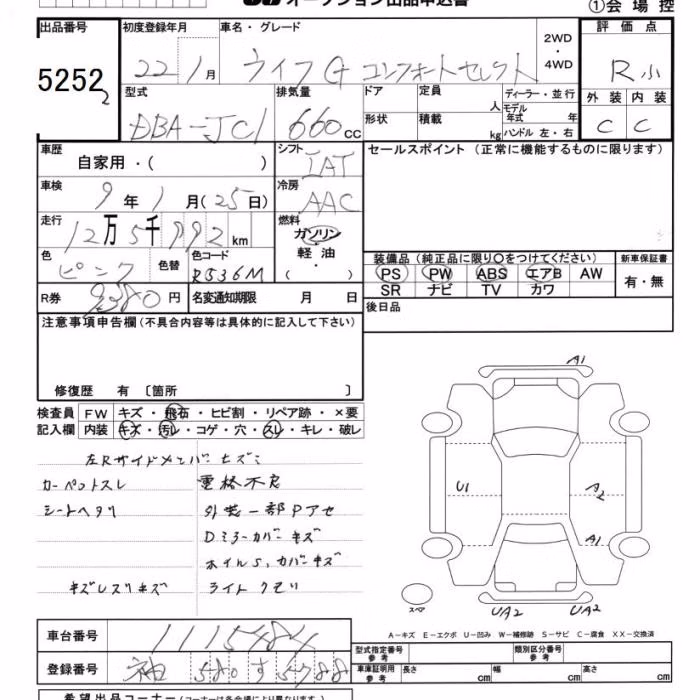 オークション出品申込書
①会場控
出品番号 初度登録年月 車名・グレード 評価点
5252 2 22 1月 ライフG コンフォートセレクト 2WD・4WD R小
外装 内装
C C
型式 排気量 ドア 定員 人 ディーラー・並行
DBA-JC1 660cc 形状 積載 kg モデル年式 年
ハンドル 左・右
車歴 自家用・( ) シフト IAT
セールスポイント (正常に機能するものに限ります)
車検 9年1月(25日) 冷房 AAC
走行 12万5千992km 燃料 ガソリン・軽油・( )
色 ピンク 色替 色コード R536M
装備品(純正品に限り○をつけてください) 新車保証書
PS PW ABS エアB AW 有・無
SR ナビ TV カワ
R券 9380円 名変通知期限 月 日
後日品
注意事項申告欄(不具合内容等は具体的に記入して下さい)
修復歴 有 〔箇所 〕
検査員 FW キズ・飛石・ヒビ割・リペア跡・×要
記入欄 内装 キズ・汚レ・コゲ・穴・スレ・キレ・破レ
左Rサイドメンバーヒズミ
カーペットスレ 電格不良
シートヘタリ 外装一部Pアセ
Dミラーカバーキズ
ホイルS、カバーキズ
キズレズリキズ ライトクモリ
A1
U1
A2
A1
スペア
UA2 UA2
A-キズ E-エクボ U-凹み W-補修跡 S-サビ C-腐食 XX-交換済
車台番号 1115484
型式指定番号 参考 類別区分番号 参考
登録番号 袖 580 す 5788
車庫証明用 参考 長さ cm 幅 cm 高さ cm
希望出品コーナー(コーナーは各会場により異なります)